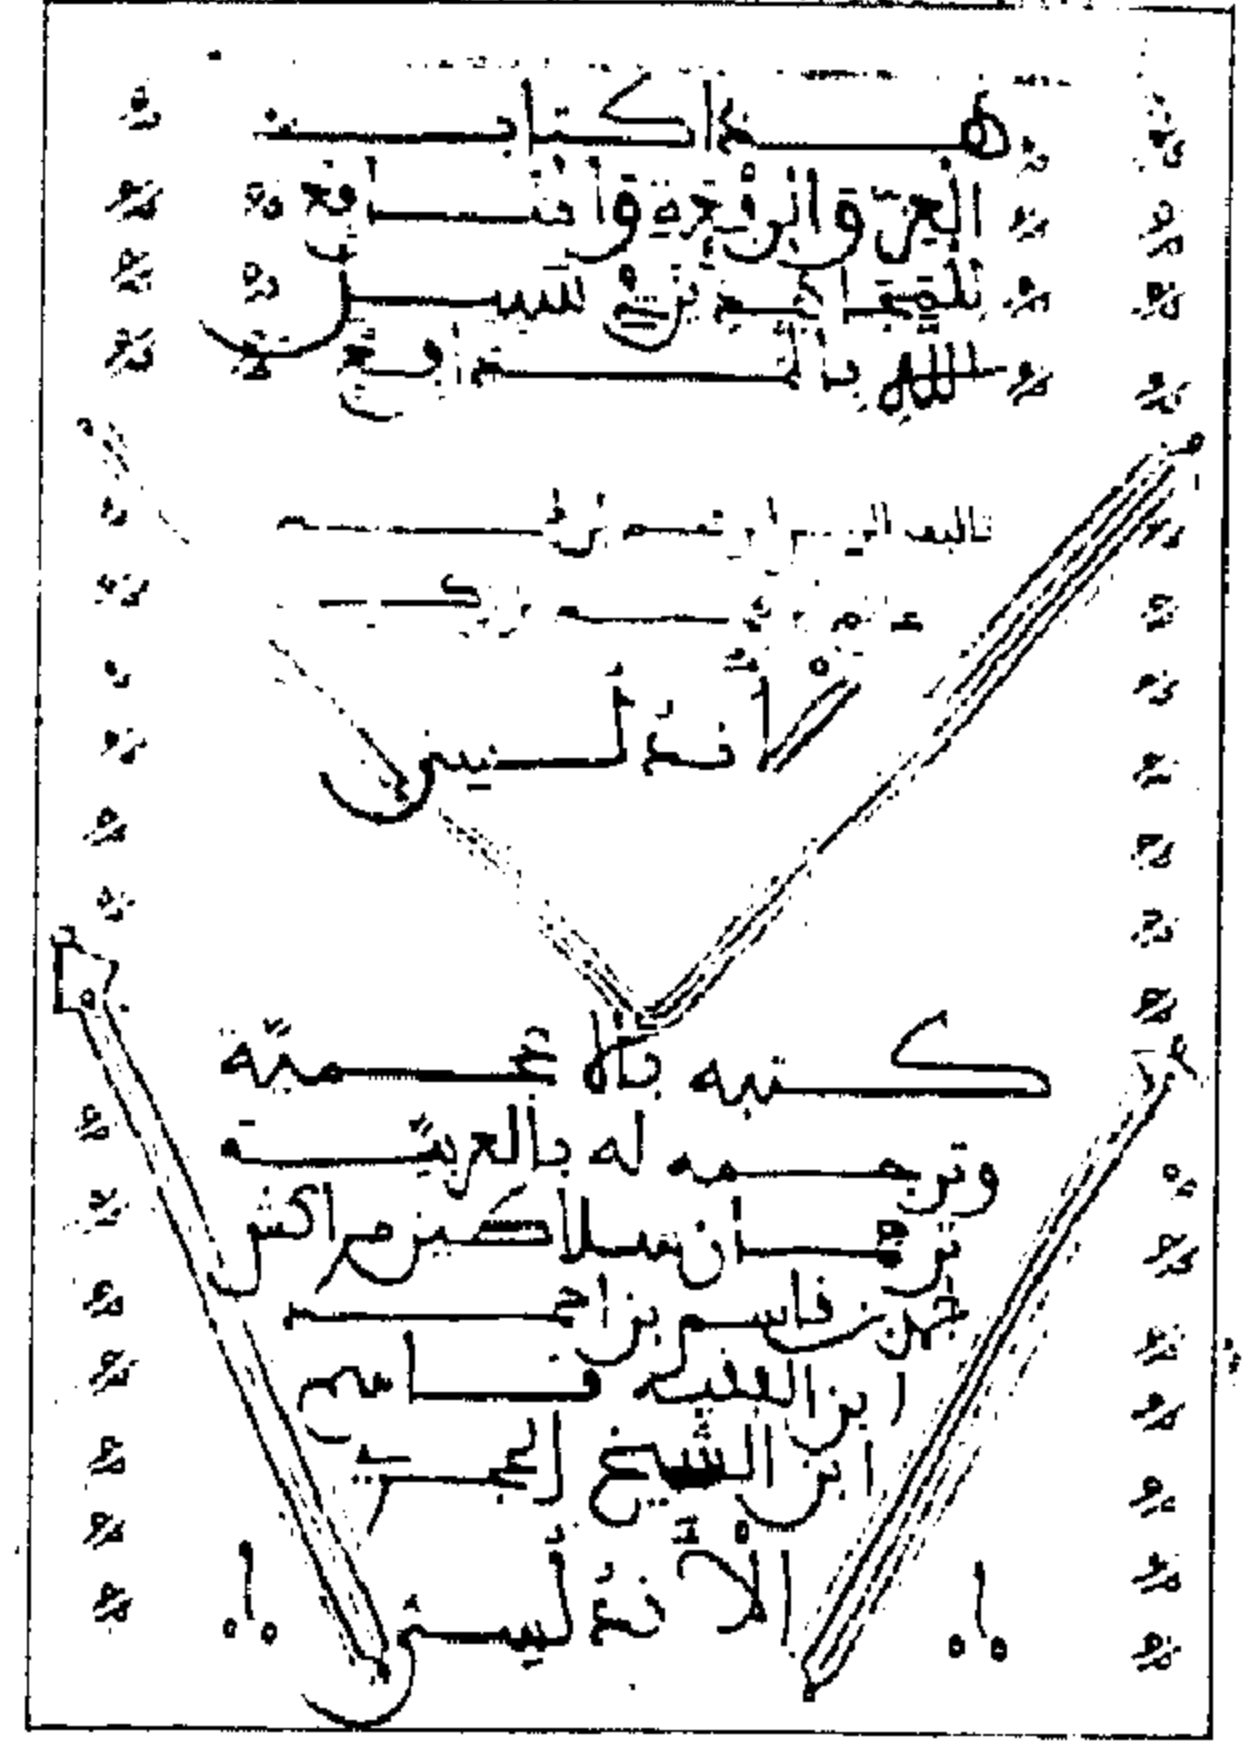 هذا كتاب
العز والرفعة والمنافع
للمجاهدين في سبيل
الله بالمدافع
تاليف الريس ابرهيم بن
احمد
الاندلسي
كتبه بالاعجمية
وترجمه له بالعربية
ترجمان سلاطين مراكش
احمد بن قاسم بن احمد
ابن الفقيه قاسم
ابن الشيخ الحجري
الاندلسي